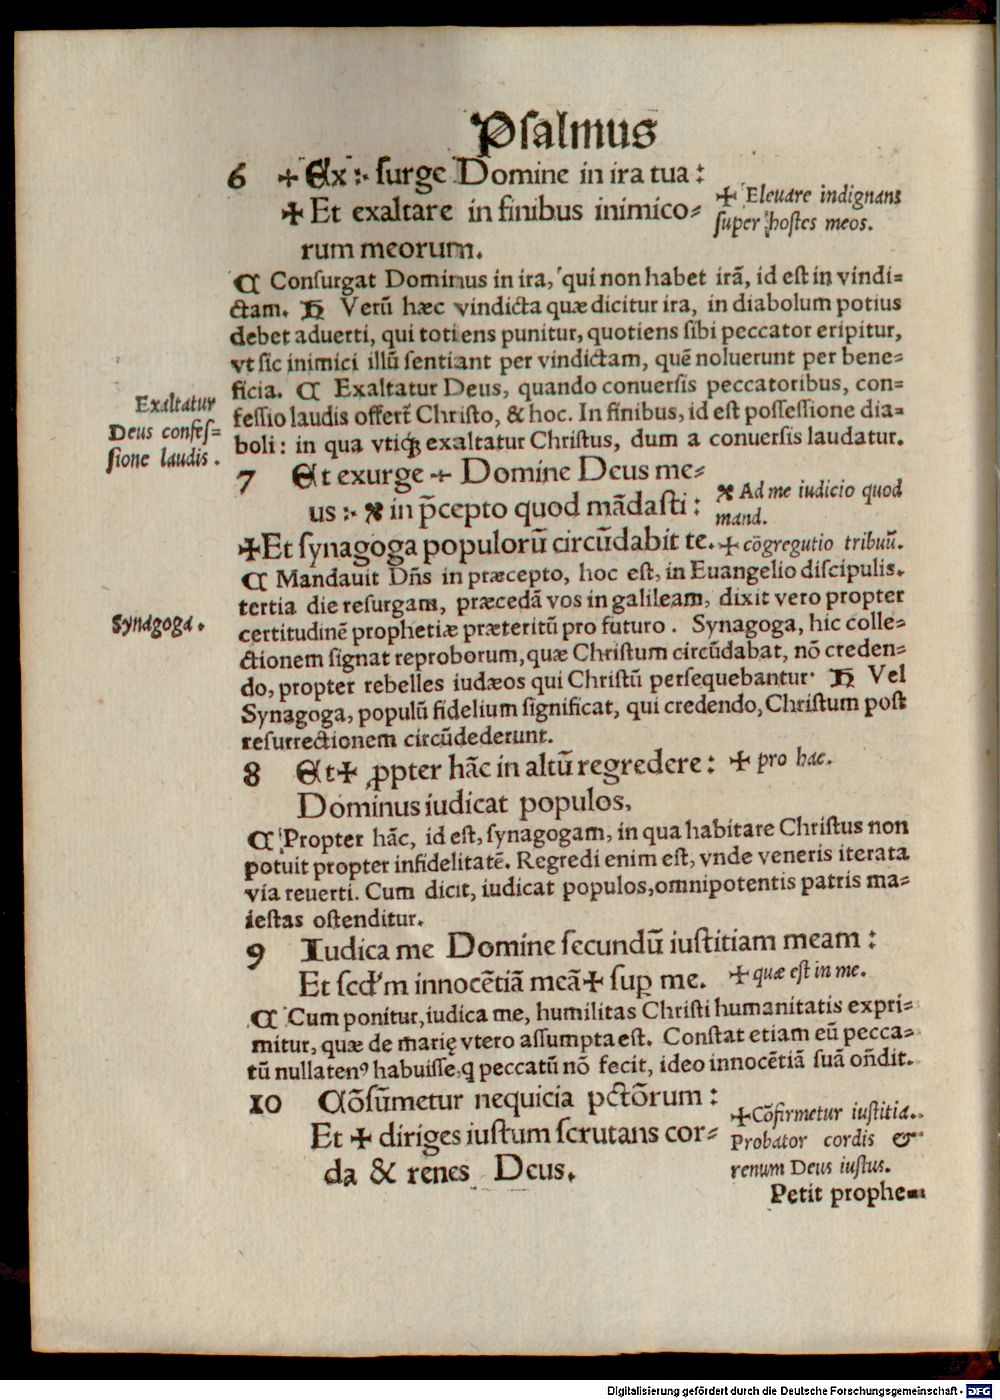 Psalmus
6 ✠ Ex :· surge Domine in ira tua :
✠ Et exaltare in finibus inimico⸗
rum meorum.
✠ Eleuare indignans
super hostes meos.
₵ Consurgat Dominus in ira, qui non habet irã, id est in vindi⸗
ctam. H Verũ hæc vindicta quæ dicitur ira, in diabolum potius
debet aduerti, qui totiens punitur, quotiens sibi peccator eripitur,
vt sic inimici illũ sentiant per vindictam, quẽ noluerunt per bene⸗
ficia. ₵ Exaltatur Deus, quando conuersis peccatoribus, con⸗
fessio laudis offert̃ Christo, & hoc. In finibus, id est possessione dia⸗
boli : in qua vtiqꝫ exaltatur Christus, dum a conuersis laudatur.
Exaltatur
Deus confes⸗
sione laudis .
7 Et exurge ÷ Domine Deus me⸗
us :· ✠ in p̃cepto quod mãdasti :
✠ Et synagoga populorũ circũdabit te.
✠ Ad me iudicio quod
mand.
✠ cõgregutio tribuũ.
₵ Mandauit Dñs in præcepto, hoc est, in Euangelio discipulis.
tertia die resurgam, præcedã vos in galileam, dixit vero propter
certitudinẽ prophetiæ præteritũ pro futuro . Synagoga, hic colle⸗
ctionem signat reproborum, quæ Christum circũdabat, nõ creden⸗
do, propter rebelles iudæos qui Christũ persequebantur· H Vel
Synagoga, populũ fidelium significat, qui credendo, Christum post
resurrectionem circũdederunt.
Synagoga.
8 Et ✠ ꝓpter hãc in altũ regredere :
Dominus iudicat populos,
✠ pro hac.
₵ Propter hãc, id est, synagogam, in qua habitare Christus non
potuit propter infidelitatẽ. Regredi enim est, vnde veneris iterata
via reuerti. Cum dicit, iudicat populos, omnipotentis patris ma⸗
iestas ostenditur.
9 Iudica me Domine secundũ iustitiam meam :
Et scd'm innocẽtiã meã ✠ suꝑ me.
✠ quæ est in me.
₵ Cum ponitur, iudica me, humilitas Christi humanitatis expri⸗
mitur, quæ de marię vtero assumpta est. Constat etiam eũ pecca⸗
tũ nullatenꝰ habuisse, q peccatũ nõ fecit, ideo innocẽtiã suã oñdit.
10 Cõsũmetur nequicia pctõrum :
Et ✠ diriges iustum scrutans cor⸗
da & renes Deus.
✠ Cõfirmetur iustitia.
Probator cordis &
renum Deus iustus.
Petit prophe⸗
Digitalisierung gefördert durch die Deutsche Forschungsgemeinschaft - DFG